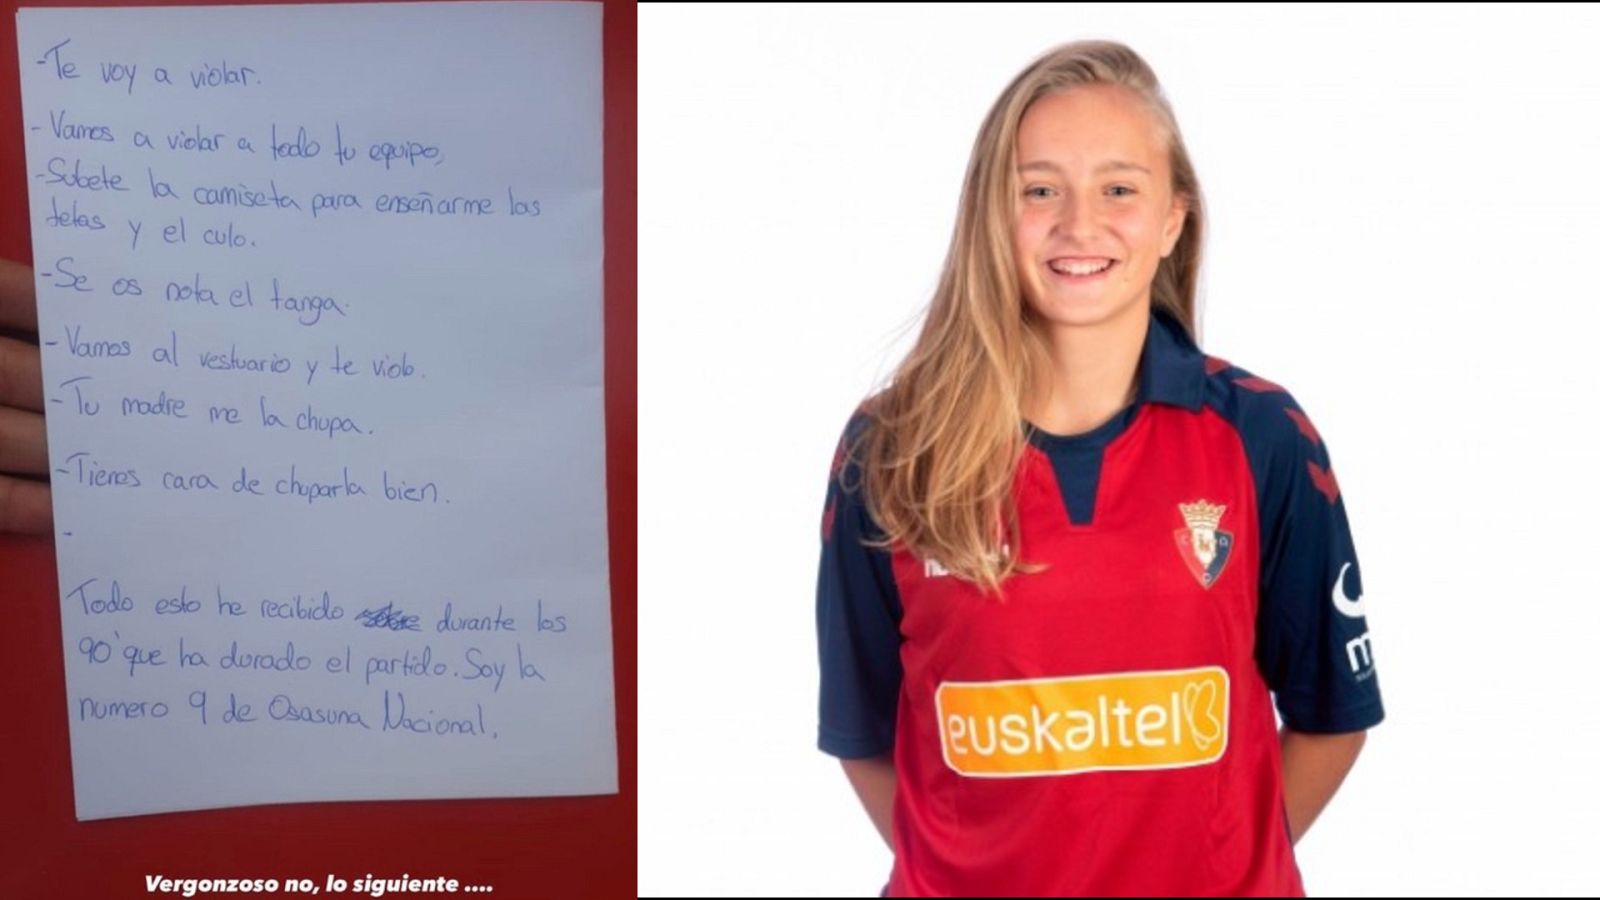 -Te voy a violar.
-Vamos a violar a todo tu equipo,
-Subete la camiseta para enseñarme las
tetas y el culo.
-Se os nota el tanga.
-Vamos al vestuario y te violo.
-Tu madre me la chupa.
-Tienes cara de chuparla bien.
-
Todo esto he recibido durante los
90' que ha durado el partido. Soy la
numero 9 de Osasuna Nacional.
Vergonzoso no, lo siguiente ....
euskaltel